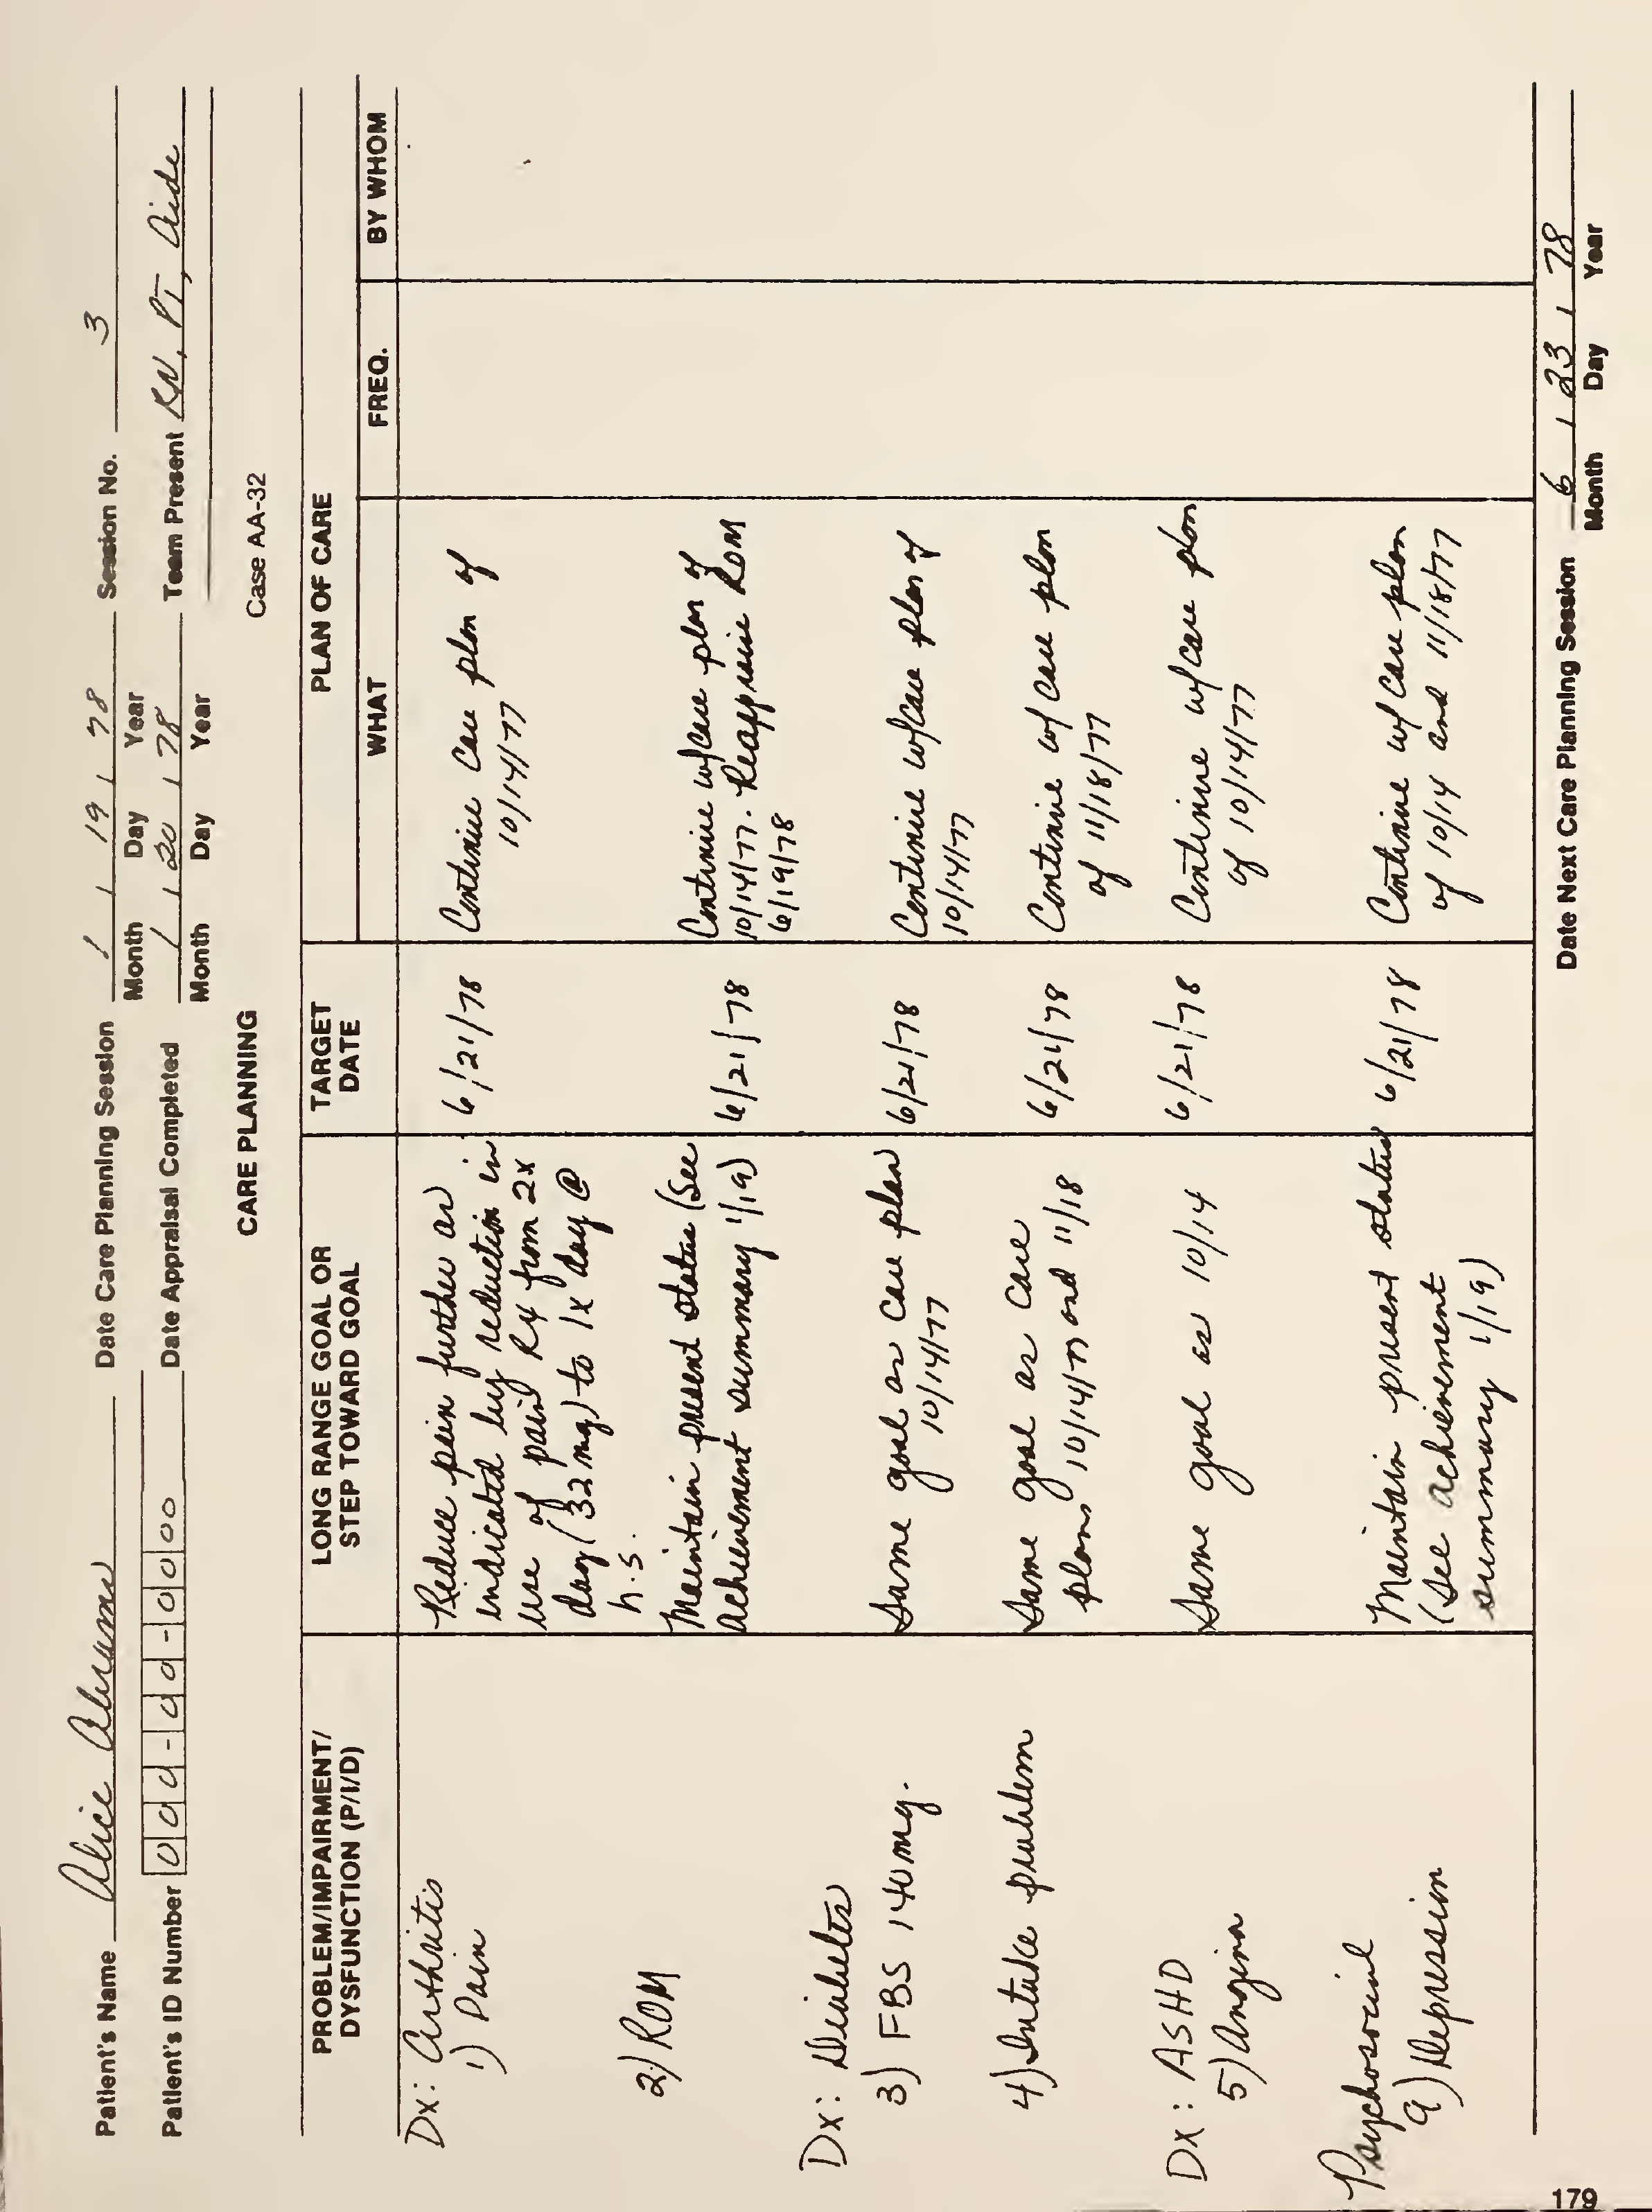 Patient's Name Alice Abrams Date Care Planning Session 1 / 19 / 78 Session No. 3
Month Day Year
Patient's ID Number 000-00-0000 Date Appraisal Completed 1 / 20 / 78 Team Present RN, PT, Aide
Month Day Year
CARE PLANNING Case AA-32
PROBLEM/IMPAIRMENT/
DYSFUNCTION (P/I/D)
LONG RANGE GOAL OR
STEP TOWARD GOAL
TARGET
DATE
PLAN OF CARE
WHAT FREQ. BY WHOM
Dx: Arthritis
1) Pain
Reduce pain further as
indicated by reduction in
use of pain Rx from 2x
day (32 mg) to 1x day @
h.s.
6/21/78
Continue care plan of
10/14/77
2) ROM
Maintain present status (See
achievement summary 1/19)
6/21/78
Continue w/care plan of
10/14/77. Reappraise ROM
6/19/78
Dx: Diabetes
3) FBS 140mg.
Same goal as care plan
10/14/77
6/21/78
Continue w/care plan of
10/14/77
4) Intake problem
Same goal as care
plans 10/14/77 and 11/18
6/21/78
Continue w/ care plan
of 11/18/77
Dx: ASHD
5) Angina
Same goal as 10/14
6/21/78
Continue w/care plan
of 10/14/77
Psychosocial
9) Depression
Maintain present status
(See achievement
summary 1/19)
6/21/78
Continue w/ care plan
of 10/14 and 11/18/77
Date Next Care Planning Session 6 / 23 / 78
Month Day Year
179